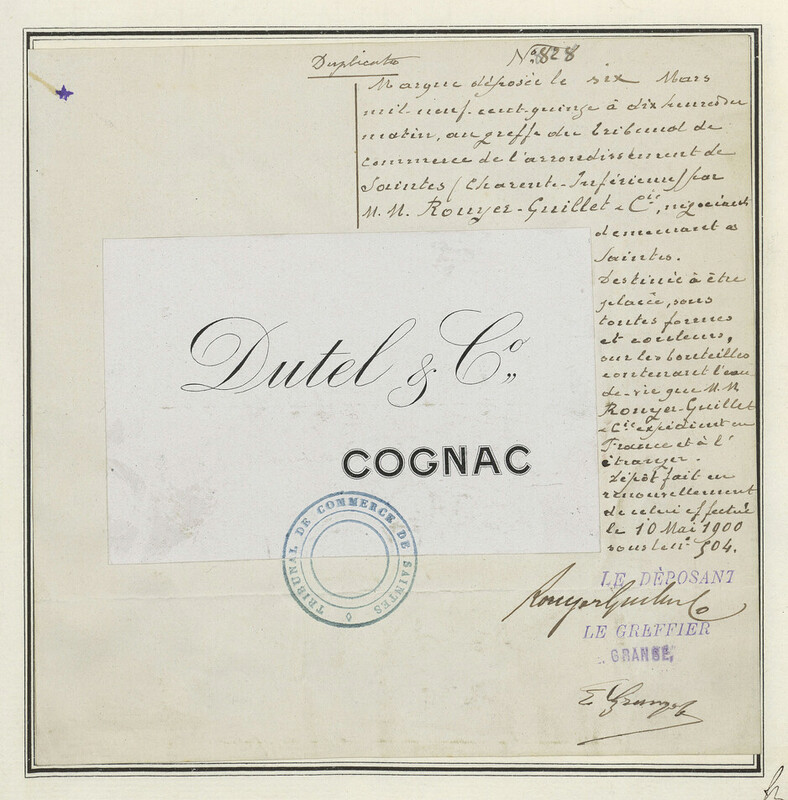 Duplicata
N° 828
Marque déposée le six Mars
mil neuf cent quinze à dix heures du
matin, au greffe du Tribunal de
commerce de l'arrondissement de
Saintes (Charente-Inférieure) par
M.M. Rouyer-Guillet & Cie, négociants
demeurant à
Saintes.
Destinée à être
placée, sous
toutes formes
et couleurs,
sur les bouteilles
contenant l'eau
-de-vie que M.M.
Rouyer-Guillet
& Cie expédient en
France et à l'
étranger.
Dépôt fait en
renouvellement
de celui effectué
le 10 Mai 1900
sous le n° 504.
Dutel & Co.
COGNAC
TRIBUNAL DE COMMERCE DE SAINTES
LE DÉPOSANT
Rouyer Guillet & Co
LE GREFFIER
GRANGÉ,